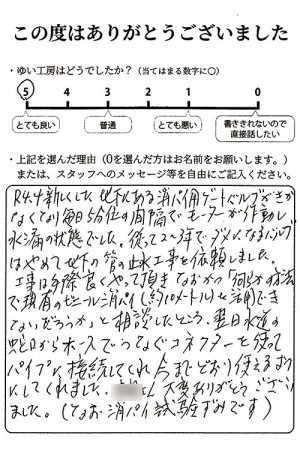 この度はありがとうございました
・ゆい工房はどうでしたか？（当てはまる数字に○）
5 4 3 2 1 0
とても良い 普通 とても悪い 書ききれないので
直接話したい
・上記を選んだ理由（0を選んだ方はお名前をお願いします。）
または、スタッフへのメッセージ等を自由にご記入ください。
R4.4新しくした地下にある消パイ用ゲートバルブがきか
なくなり毎日5分位の間隔でモーターが作動し
水漏の状態でした。従って2〜3年でダメになるバルブ
はやめて地下の管の止水工事を依頼しました。
工事は手際良くやって頂きなおかつ「何らかの方法
で現有のビニール消パイ（約10メートル）を活用でき
ないだろうか」と相談したところ、翌日水道の
蛇口からホースでつなぐコネクターを使って
パイプに接続してくれ今までどおり使えるよう
にしてくれました。大変ありがとうござい
ました。（なお消パイ試験ずみです）